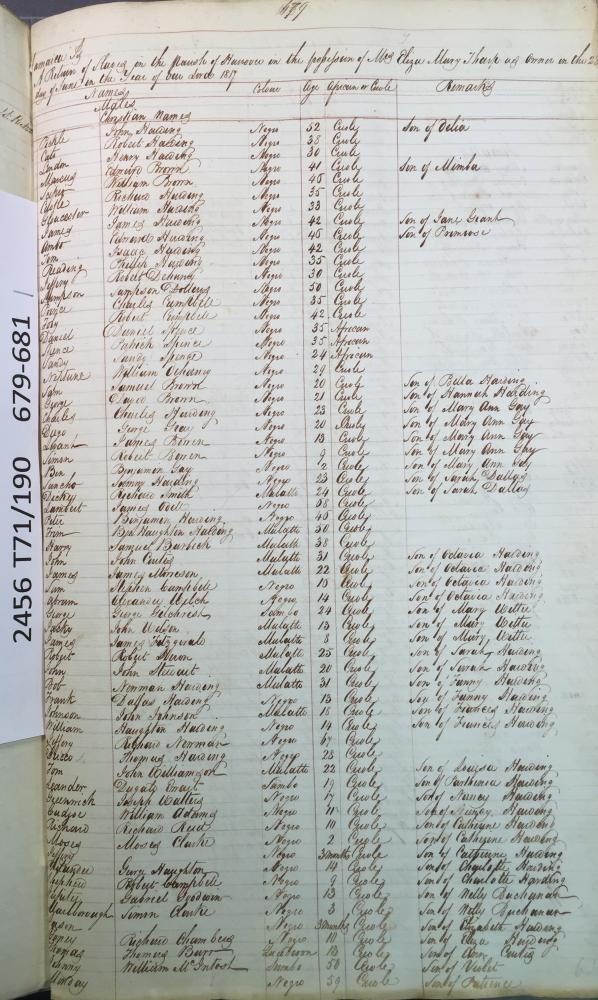 679
Jamaica Ss
A Return of Slaves in the Parish of Hanover in the possession of Mrs Eliza Mary Tharp as Owner on the 28
day of June in the Year of our Lord 1817
Names Colour Age African or Creole Remarks
Males
Christian Names
John Harding Negro 52 Creole Son of Delia
Cato Robert Harding Negro 38 Creole
London Henry Harding Negro 30 Creole
Marcus Edward Brown Negro 41 Creole Son of Mimba
William Brown Negro 45 Creole
Richard Harding Negro 35 Creole
William Harding Negro 33 Creole
Gloucester James Harding Negro 42 Creole Son of Jane Grant
James Edmond Harding Negro 45 Creole Son of Primrose
Isaac Harding Negro 42 Creole
Tom Phillip Harding Negro 35 Creole
Reading Robert Negro 30 Creole
Jeffery Sampson Negro 50 Creole
Sampson Charles Campbell Negro 35 Creole
Robert Campbell Negro 42 Creole
Toby Daniel Spence Negro 35 African
Daniel Patrick Spence Negro 35 African
Spence Sandy Spence Negro 24 African
Sandy William Negro 29 Creole
Neptune Samuel Brown Negro 20 Creole Son of Bella Harding
Sam Brown Negro 21 Creole Son of Hannah Harding
George Charles Harding Negro 23 Creole Son of Mary Ann Gay
Charles George Gray Negro 20 Creole Son of Mary Ann Gay
James Negro 13 Creole Son of Mary Ann Gay
Robert Negro 9 Creole Son of Mary Ann Gay
Simon Benjamin Gay Negro 2 Creole Son of Mary Ann Gay
Ben Harding Negro 23 Creole Son of Sarah Dallas
Sancho Richard Smith Mulatto 24 Creole Son of Sarah Dallas
Dickey James Negro 38 Creole
Lambert Benjamin Harding Negro 45 Creole
Ben Haughton Harding Mulatto 30 Creole
Samuel Mulatto 38 Creole
Harry John Curtis Mulatto 31 Creole Son of Octavia Harding
John James Mulatto 22 Creole Son of Octavia Harding
James Stephen Campbell Negro 18 Creole Son of Octavia Harding
Sam Alexander Welch Negro 14 Creole Son of Octavia Harding
Abram George Sambo 24 Creole Son of Mary
George John Wilson Mulatto 13 Creole Son of Mary
James Fitzgerald Mulatto 8 Creole Son of Mary
James Robert Mulatto 25 Creole Son of Sarah Harding
Robert John Stewart Mulatto 20 Creole Son of Sarah Harding
John Norman Harding Mulatto 31 Creole Son of Fanny Harding
Bob Dallas Harding Negro 13 Creole Son of Fanny Harding
Frank John Johnson Mulatto 18 Creole Son of Frances Harding
Johnson Haughton Harding Negro 14 Creole Son of Frances Harding
William Richard Norman Negro 67 Creole
Thomas Harding Negro 28 Creole
John Williamson Mulatto 22 Creole Son of Louisa Harding
Tom Dugald Sambo 19 Creole Son of Parthenia Harding
Leander Joseph Walters Negro 17 Creole Son of Nancy Harding
Greenwich William Adams Negro 11 Creole Son of Nancy Harding
Cudjoe Richard Reid Negro 10 Creole Son of Catherine Harding
Richard Moses Clarke Negro 2 Creole Son of Catherine Harding
Moses Negro 3 months Creole Son of Catherine Harding
George Haughton Negro 14 Creole Son of Charlotte Harding
Robert Campbell Negro 9 Creole Son of Charlotte Harding
Gabriel Goodwin Negro 13 Creole Son of Nelly Buchanan
Simon Clarke Negro 3 Creole Son of Nelly Buchanan
Scarborough Negro 3 months Creole Son of Elizabeth Harding
Richard Chambers Negro 10 Creole Son of Eliza Harding
Thomas Quadroon 13 Creole Son of Ann Curtis
Thomas William McIntosh Sambo 50 Creole Son of Violet
Johnny Negro 59 Creole Son of Patience
2456 T71/190 679-681